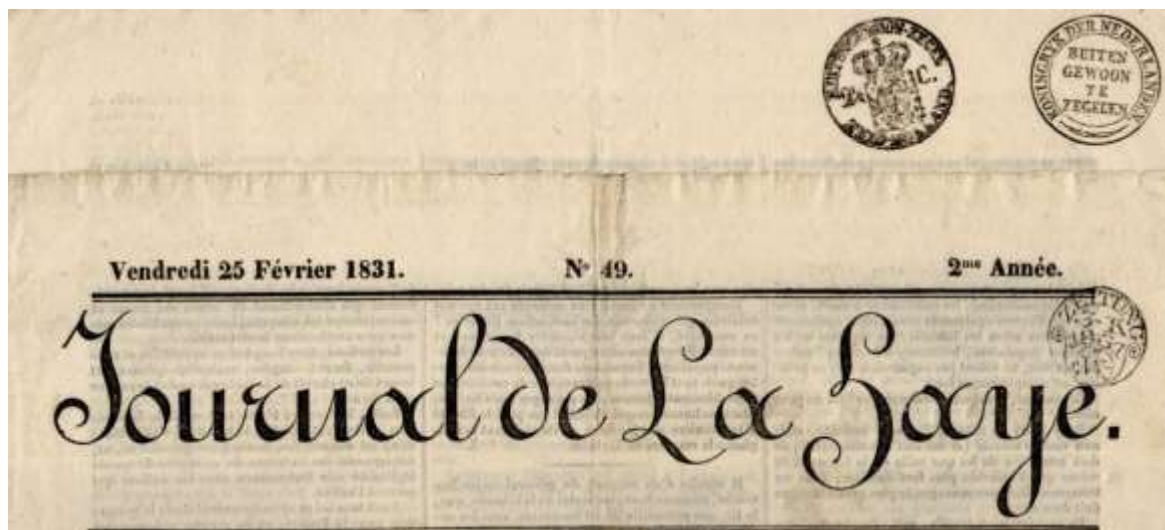 KONINGRYK DER NEDERLANDEN
BUITEN
GEWOON
TE
ZEGELEN
Vendredi 25 Février 1831.
N° 49.
2me Année.
ZEITUNGS
Journal de La Haye.